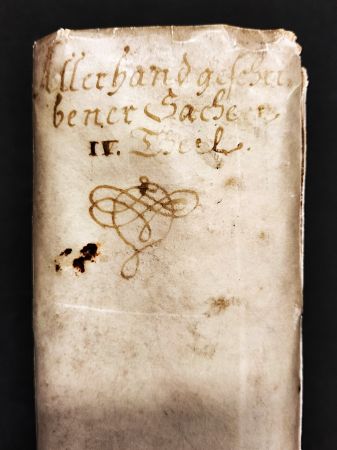 Allerhand geschri-
bener Sachen
II. Theil.